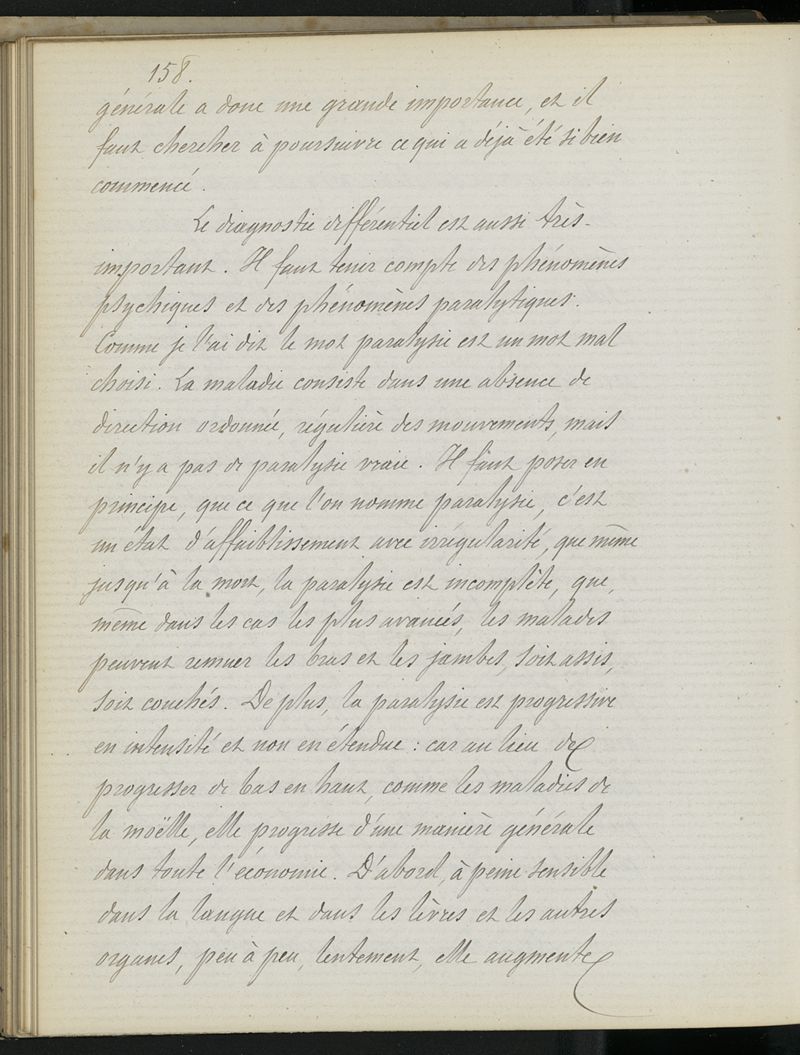 158.
générale a donc une grande importance, et il
faut chercher à poursuivre ce qui a déjà été si bien
commencé.
Le diagnostic différentiel est aussi très-
important. Il faut tenir compte des phénomènes
psychiques et des phénomènes paralytiques.
Comme je l'ai dit le mot paralysie est un mot mal
choisi. La maladie consiste dans une absence de
direction ordonnée, régulière des mouvements, mais
il n'y a pas de paralysie vraie. Il faut poser en
principe, que ce que l'on nomme paralysie, c'est
un état d'affaiblissement avec irrégularité, que même
jusqu'à la mort, la paralysie est incomplète, que,
même dans les cas les plus avancés, les malades
peuvent remuer les bras et les jambes, soit assis,
soit couchés. De plus, la paralysie est progressive
en intensité et non en étendue : car au lieu de
progresser de bas en haut, comme les maladies de
la moëlle, elle progresse d'une manière générale
dans toute l'économie. D'abord, à peine sensible
dans la langue et dans les lèvres et les autres
organes, peu à peu, lentement, elle augmente